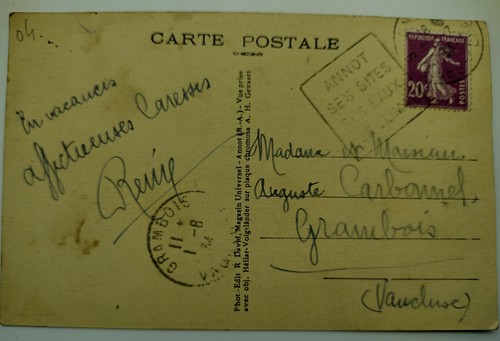 04.
CARTE POSTALE
ANNOT
SES SITES
SES EAUX
REPUBLIQUE FRANÇAISE
20c
POSTES
En vacances
affectueuses Caresses
Rémy
GRAMBOIS
11 - 8
Phot-Edit R David, Magasin Universel - Annot (B.-A.) - Vue prise
avec obj. Héliar-Voigtländer sur plaque chromosa A. H. Gevaert
Madame et Monsieur
Auguste Carbonnel
Grambois
(Vaucluse)